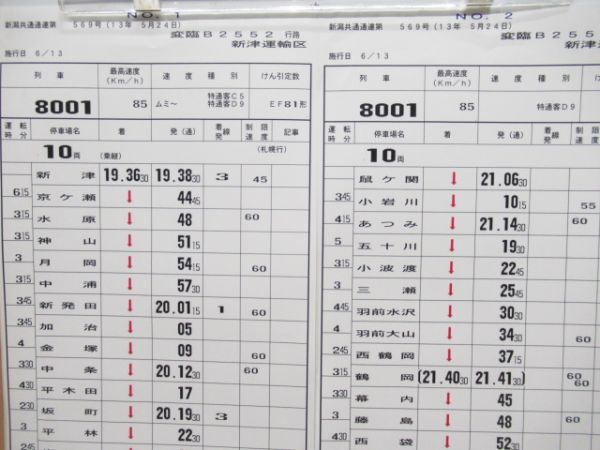 NO. 1
新潟共通達第 569号(13年 5月24日) 変臨B2552 行路
施行日 6/13 新津運輸区
列車 最高速度(Km/h) 速度種別 けん引定数
8001 85 ムミ〜 特通客C5 特通客D9 EF81形
運転時分 停車場名 着 発(通) 着発線 制限速度 記事
10両 (乗継) (札幌行)
新津 19.36 30 19.38 30 3 45
6 15
京ケ瀬 ↓ 44 45
3 15
水原 ↓ 48 60
3 15
神山 ↓ 51 15
3
月岡 ↓ 54 15 60
3 15
中浦 ↓ 57 30
3 45
新発田 ↓ 20.01 15 1 60
3 45
加治 ↓ 05
4
金塚 ↓ 09 60
3 30
中条 ↓ 20.12 30 60
4 30
平木田 ↓ 17
2 30
坂町 ↓ 20.19 30 3
3
平林 ↓ 22 30
2 45
NO. 2
新潟共通達第 569号(13年 5月24日) 変臨B255
施行日 6/13 新津運
列車 最高速度(Km/h) 速度種別 けん
8001 85 特通客D9
運転時分 停車場名 着 発(通) 着発線 制限速度
10両
鼠ケ関 ↓ 21.06 30
3 45
小岩川 ↓ 10 15 55
4 15
あつみ ↓ 21.14 30 60
5
五十川 ↓ 19 30
3 15
小波渡 ↓ 22 45
3
三瀬 ↓ 25 45
4 45
羽前水沢 ↓ 30 30
4
羽前大山 ↓ 34 30 60
2 45
西鶴岡 ↓ 37 15
3 15
鶴岡 (21.40 30 21.41 30) 60 60
3 30
幕内 ↓ 45
3
藤島 ↓ 48 60
4 30
西袋 ↓ 52 30